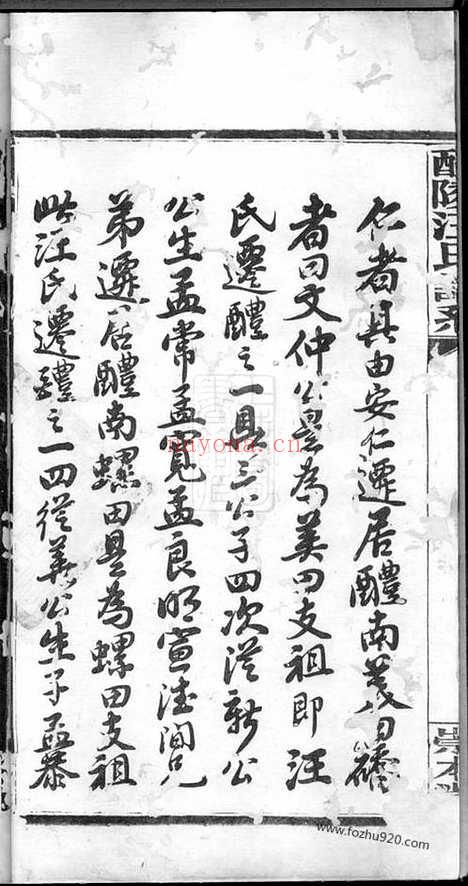 醴陵汪氏譜系
仁者其由安仁遷居醴南美田橋
者曰文仲公是為美田支祖即汪
氏遷醴之一具三公子四次從新公
公生孟常孟寬孟良明宣德間兄
弟遷居醴南螺田是為螺田支祖
此汪氏遷醴之一四從善公生子孟
nnyona.cn
www.fozhu920.com